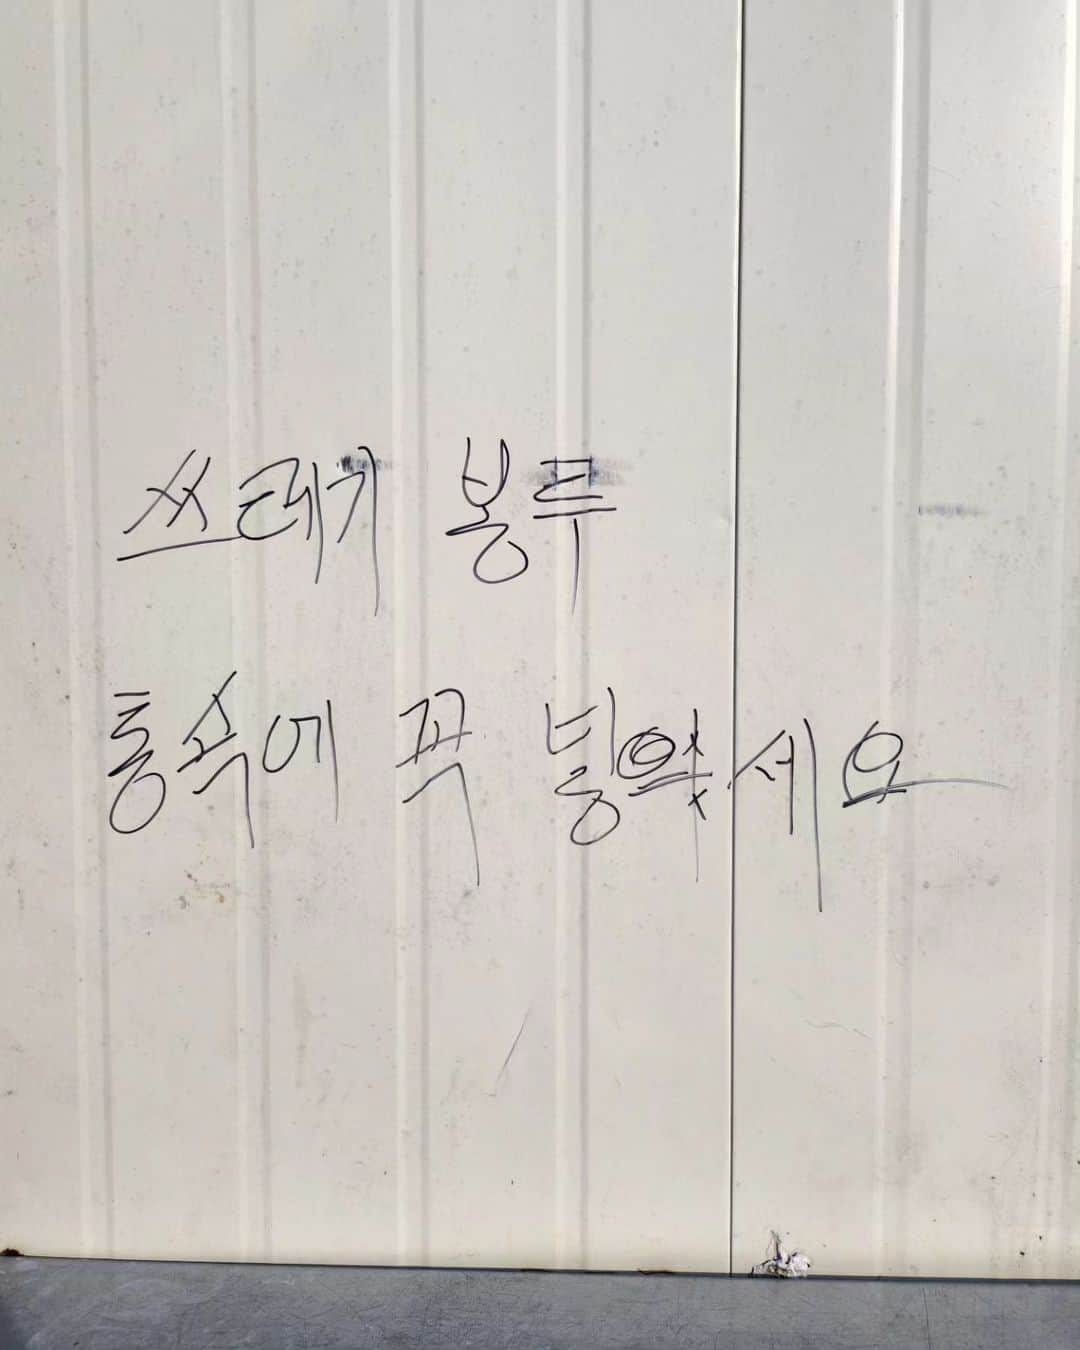 쓰레기 봉투
통속에 꼭 세요